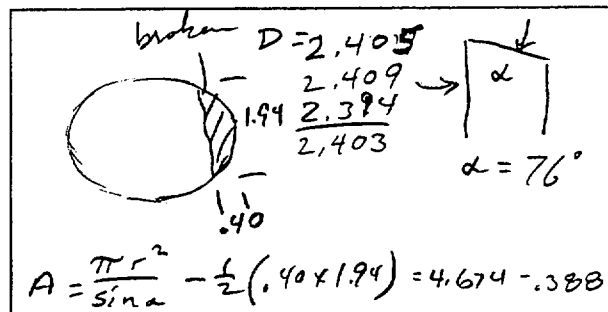 broken
D = 2.405
2.409
2.394
2,403
1.94
.40
α
α = 76°
A = πr²/sin α - 1/2 (.40 x 1.94) = 4.674 - .388